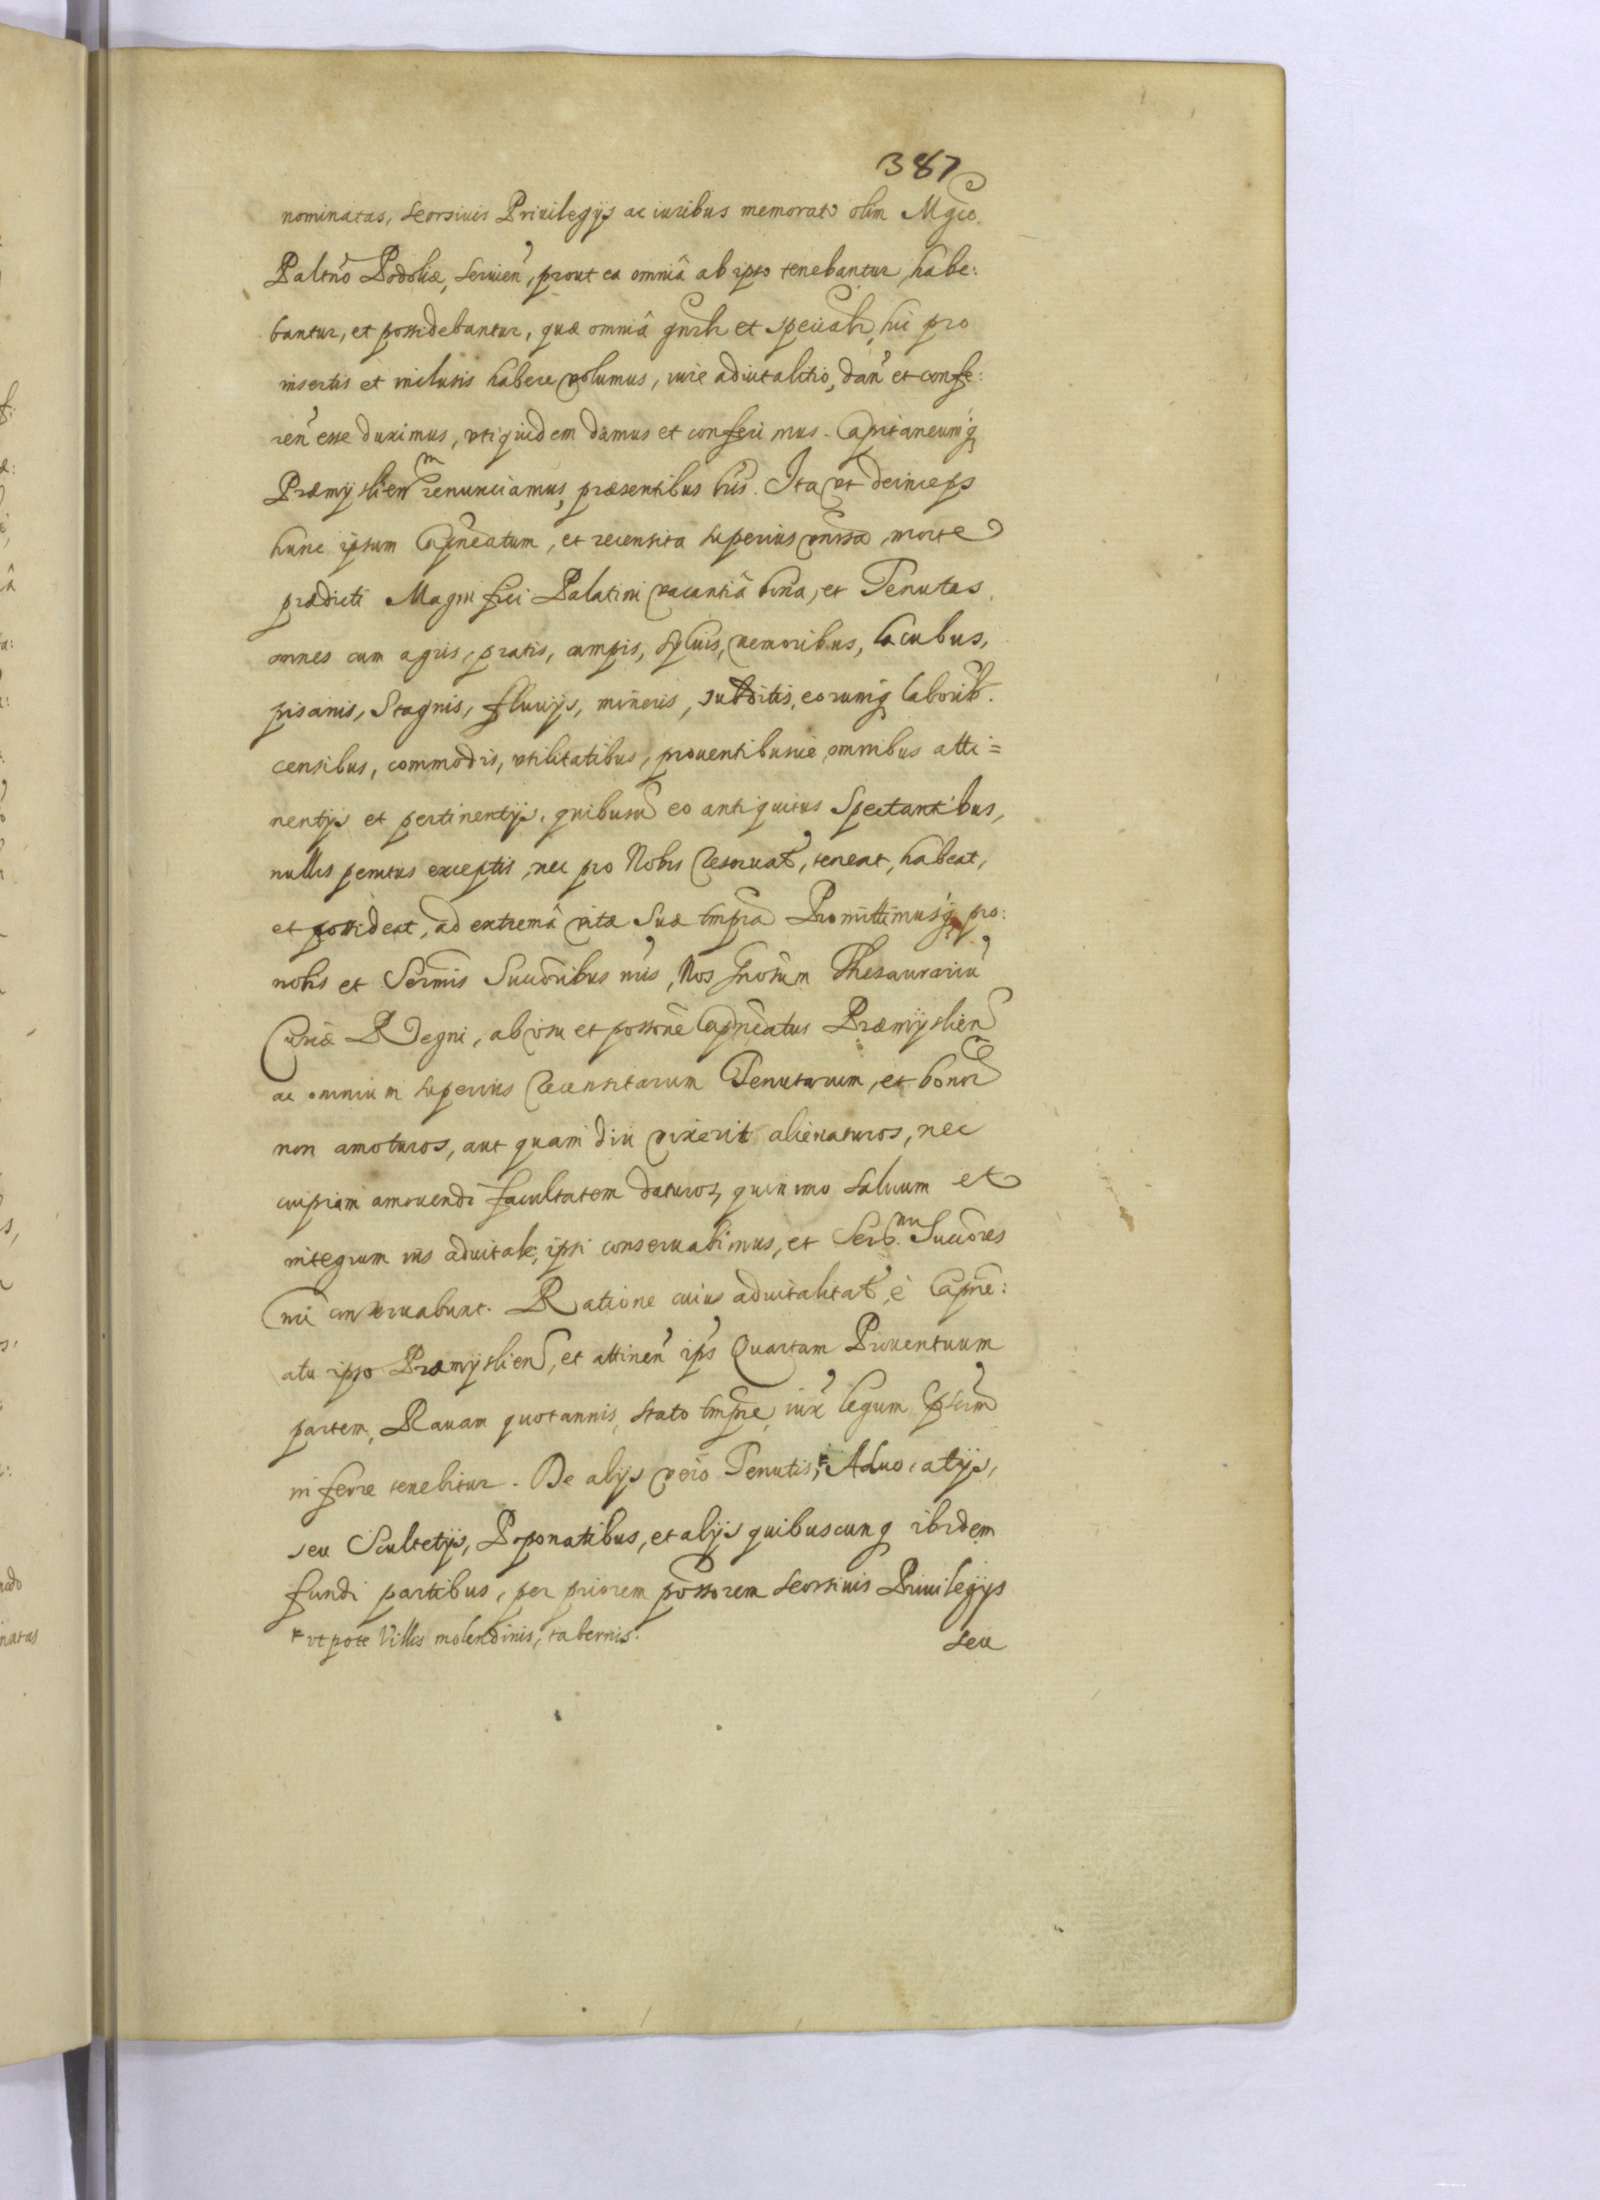 387
nominatas, seorsiuis Priuilegijs ac iuribus memorato olim Mgco.
Paltno Podoliæ, seruien, prout ea omniâ ab ipso tenebantur, habe:
bantur, et possidebantur, quæ omniâ gnrlr et specialr, hic pro
insertis et inclusis habere volumus, iure aduitalitio, dan et confe:
ren esse duximus, vti quidem damus et conferimus. Capitaneumq
Præmyslien renunciamus, præsentibus hris. Ita vt deinceps
hunc ipsum Capneatum, et recensita superius vnrsa, morte
prædicti Magnifici Palatini vacantiâ bona, et Tenutas
omnes cum agris, pratis, campis, syluis, nemoribus, lacubus,
piscinis, Stagnis, fluuijs, mineris, subditis, eorumq laborib.
censibus, commodis, vtilitatibus, prouentibusue omnibus atti=
nentijs et pertinentijs, quibusuis eo antiquitus Spectantibus,
nullis penitus exceptis, nec pro Nobis reseruat, teneat, habeat,
et possideat, ad extremâ vitæ suæ tmpra Promittimusq pro:
nobis et Sermis Succoribus nris, Nos Gnosum Thesaurariu
Curiæ Regni, ab vsu et possone Capneatus Præmyslien
ac omnium superius recensitarum Tenutarum, et bonor
non amoturos, aut quam diu vixerit alienaturos, nec
cuipiam amouendi facultatem daturos, quin imo saluum et
integrum ius aduitale, ipsi conseruabimus, et Ser. Succores
nri conseruabunt. Ratione cuius aduitalitat, è Capne:
atu ipso Præmyslien, et attinen ips Quartam Prouentuum
partem, Rauam quotannis, stato tmpre, iux legum pscrm
inferre tenebitur. De alijs vero Tenutis, + Aduocatijs,
seu Scultetijs, Poponatibus, et alijs quibuscunq ibidem
fundi partibus, per priorem possorem seorsiuis Priuilegijs
+ vt pote Villis molendinis, tabernis.
seu